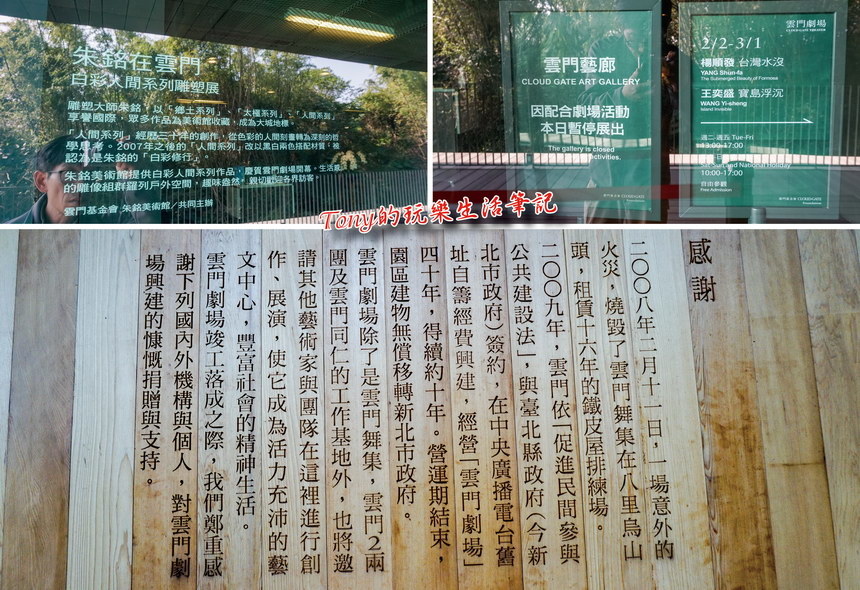 朱銘在雲門
白彩人間系列雕塑展
雕塑大師朱銘，以「鄉土系列」、「太極系列」、「人間系列」
享譽國際，眾多作品為美術館收藏，成為大城地標。
「人間系列」經歷三十年的創作，從色彩的人間刻畫轉為深刻的哲
學思考。2007年之後的「人間系列」改以黑白兩色搭配材質，被
認為是朱銘的「白彩修行」。
朱銘美術館提供白彩人間系列作品，慶賀雲門劇場開幕，生活
的雕像組群羅列戶外空間，趣味盎然，親切歡迎各界訪客。
雲門基金會 朱銘美術館／共同主辦
雲門藝廊
CLOUD GATE ART GALLERY
因配合劇場活動
本日暫停展出
The gallery is closed
activities.
雲門劇場
CLOUD GATE THEATER
2/2-3/1
楊順發 台灣水沒
YANG Shun-fa
The Submerged Beauty of Formosa
王奕盛 寶島浮沉
WANG Yi-sheng
Island Invisible
週二-週五 Tue-Fri
13:00-17:00
National Holiday
10:00-17:00
自由參觀
Free Admission
Tony的玩樂生活筆記
感謝
二〇〇八年二月十一日，一場意外的
火災，燒毀了雲門舞集在八里烏山
頭，租賃十六年的鐵皮屋排練場。
二〇〇九年，雲門依「促進民間參與
公共建設法」，與臺北縣政府（今新
北市政府）簽約，在中央廣播電台舊
址自籌經費興建，經營「雲門劇場」
四十年，得續約十年。營運期結束，
園區建物無償移轉新北市政府。
雲門劇場除了是雲門舞集，雲門2兩
團及雲門同仁的工作基地外，也將邀
請其他藝術家與團隊在這裡進行創
作、展演，使它成為活力充沛的藝
文中心，豐富社會的精神生活。
雲門劇場竣工落成之際，我們鄭重感
謝下列國內外機構與個人，對雲門劇
場興建的慷慨捐贈與支持。